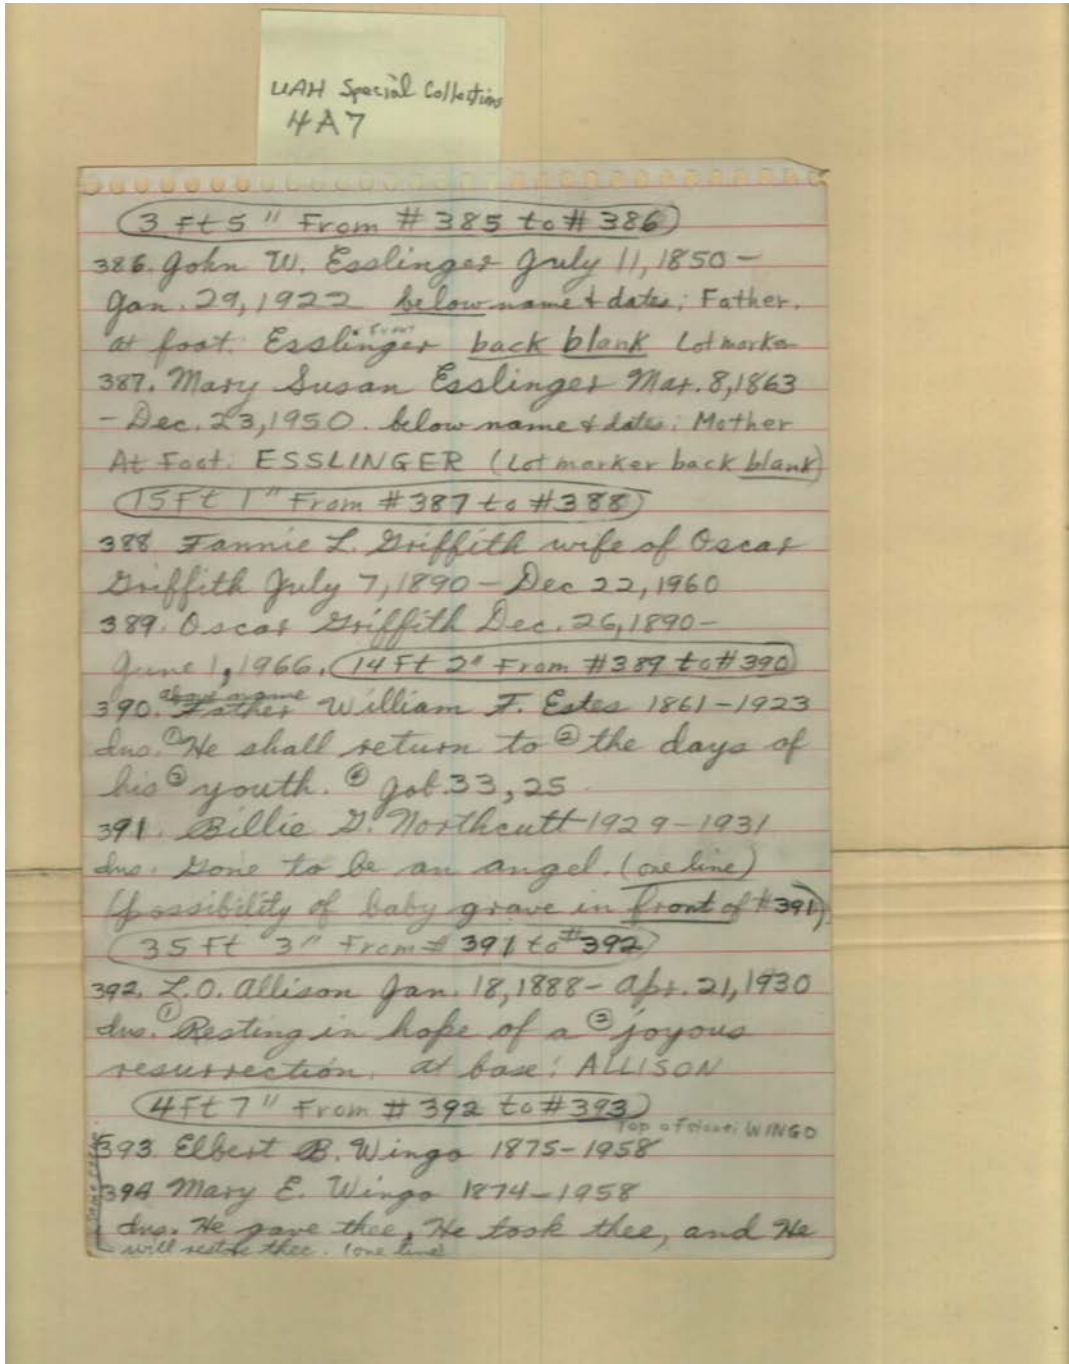 UAH Special Collections
4A7
3 Ft 5" From # 385 to # 386
386. John W. Esslinger July 11, 1850 –
Jan. 29, 1922 below name & dates: Father.
at foot: Esslinger back blank Lot marker
387. Mary Susan Esslinger Mar. 8, 1863
– Dec. 23, 1950. below name & dates: Mother
At Foot: ESSLINGER (Lot marker back blank)
15 Ft 1" From # 387 to # 388
388. Fannie L. Griffith wife of Oscar
Griffith July 7, 1890 – Dec 22, 1960
389. Oscar Griffith Dec. 26, 1890 –
June 1, 1966. 14 Ft 2" From # 389 to # 390
above name
390. Father William F. Estes 1861–1923
Ins. ① He shall return to ② the days of
his ③ youth. ④ Job. 33, 25
391. Billie G. Northcutt 1929–1931
Ins. Gone to be an angel. (one line)
(possibility of baby grave in front of # 391)
35 Ft 3" From # 391 to # 392
392. L.O. Allison Jan. 18, 1888 – Apr. 21, 1930
Ins. ① Resting in hope of a ② joyous
resurrection. at base: ALLISON
4 Ft 7" From # 392 to # 393
Top of stone: WINGO
393. Elbert B. Wingo 1875–1958
394 Mary E. Wingo 1874–1958
Ins. He gave thee, He took thee, and He
will restore thee. (one line)